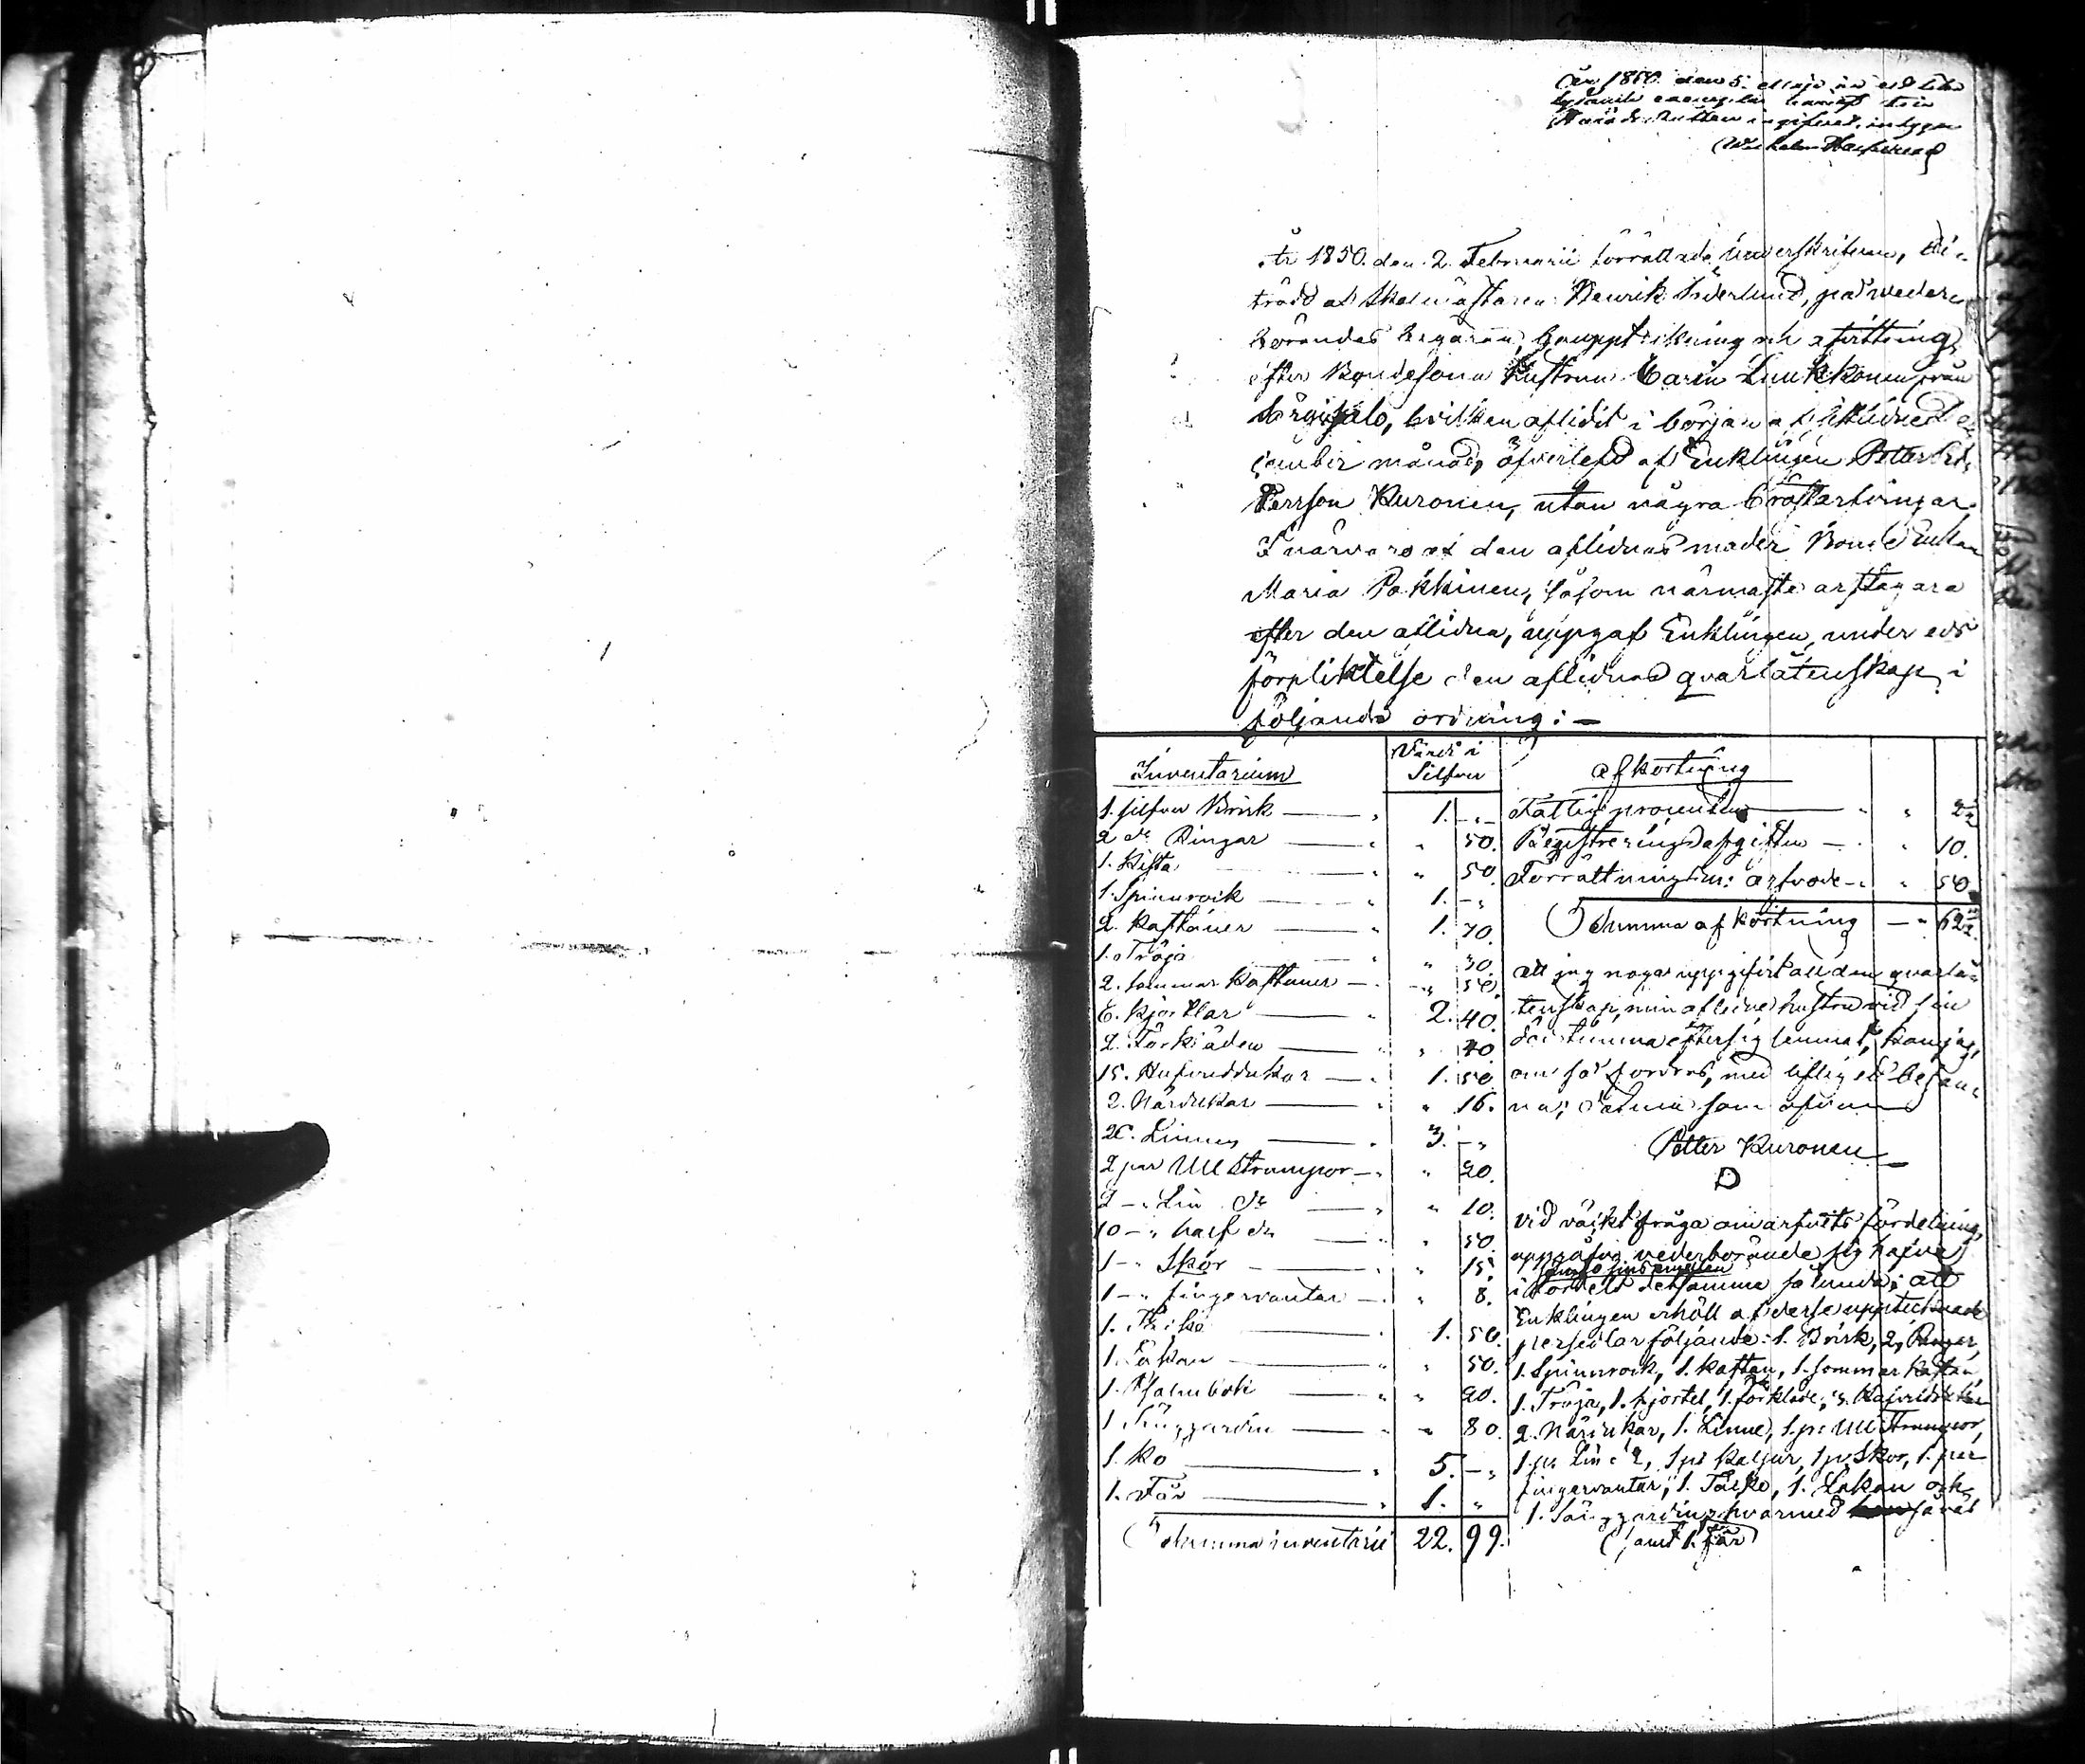 År 1850 den 5. Maji är ett lika
lydande exemplar häraf till
Härads Rätten ingifvet, intygar
År 1850. den 2. Februarii förrättade underskrifven, bi-
trädd af Skolmästaren Henrik Söderlund, på veder-
börandes begäran, bouppteckning och afvittring
efter Bondesons Hustrun Carin Luukkonen från
hvilken aflidit i början af sistlidne De-
cember månad, öfverlefd af Enklingen Petter
Persson Kuronen, utan några bröstarfvingar
I närvaro af den aflidnas moder Bonde Enkan
Maria Pakkinen, såsom närmaste arftagare
efter den aflidna, uppgaf Enklingen, under eds
förpliktelse den aflidnas qvarlåtenskap i
följande ordning: —
Inventarium Värde i Silfver
1. silfver Brisk — " 1. - " -
2 do Ringar — " " 50.
1. Kista " " 50.
1. Spinnrock — " 1. - "
2. Kaftaner — " 1. 70.
1. Tröja " " 30.
2. sommar Kaftaner — " 50.
6. Kjortlar — " 2. 40.
2. Förkläden — " 40.
15. Hufvuddukar — " 1. 50
2. Närdukar — " " 16.
20. Linnen — " 3. - "
2 par Ull Strumpor — " " 20.
2 - " Lin do — " " 10.
10 - " half do — " 50
1 - " Skor — " " 15.
1 - " fingervantar — " " 8.
1. — " 1. 50.
1. Lakan — " " 50.
1. Psalmbok — " " 20.
1 Sänggardin — " " 80.
1. Ko — " 5. - "
1. Får — " 1. "
Summa inventarii 22. 99.
Afkortning
Fattigprocenten — " " 2 ½
Registreringsafgiften — " " 10.
Förrättningsm: arfvode — " " 50
Summa afkortning — " 62 ½.
Att jag noga uppgifvit all den qvarlå-
tenskap, min aflidne hustru vid sin
dödstimma efter sig lemnat, kan jag,
om så fordras, med liflig ed besan-
na; Datum som ofvan
Petter Kuronen
Vid väckt fråga om arfvets fördelning,
uppgåfvo vederbörande sig hafva
fördelt detsamma sålunda: att
Enklingen erhöll af desse upptecknade
persedlar följande: 1. Brisk, 2, Ringar,
1. Spinnrock, 1. Kaftan, 1. sommar Kaftan,
1. Tröja, 1. kjortel, 1. förkläde, 3. Hufvuddukar
2. Närdukar, 1. Linne, 1. pr Ull Strumpor,
1. pr Lin do, 1 pr half do, 1 pr Skor, 1. par
fingervantar, 1. 1. Lakan och
1. Sänggardin, hvarmed
samt 1. får